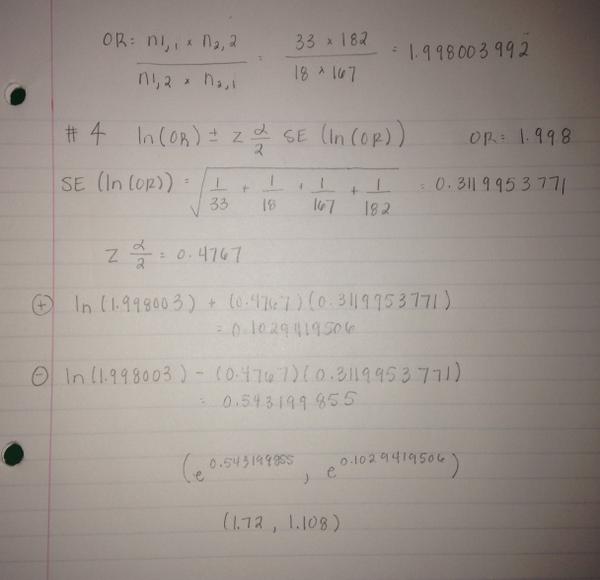 OR: n1,1 x n2,2 / n1,2 x n2,1 = 33 x 182 / 18 x 167 = 1.998003992
#4 ln(OR) ± z α/2 SE (ln(OR)) OR= 1.998
SE (ln(OR)) = √ 1/33 + 1/18 + 1/167 + 1/182 = 0.3119953771
z α/2 = 0.4767
⊕ ln(1.998003) + (0.4767)(0.3119953771)
= 0.1029419506
⊖ ln(1.998003) - (0.4767)(0.3119953771)
= 0.543199855
(e^0.543199855, e^0.1029419506)
(1.72, 1.108)